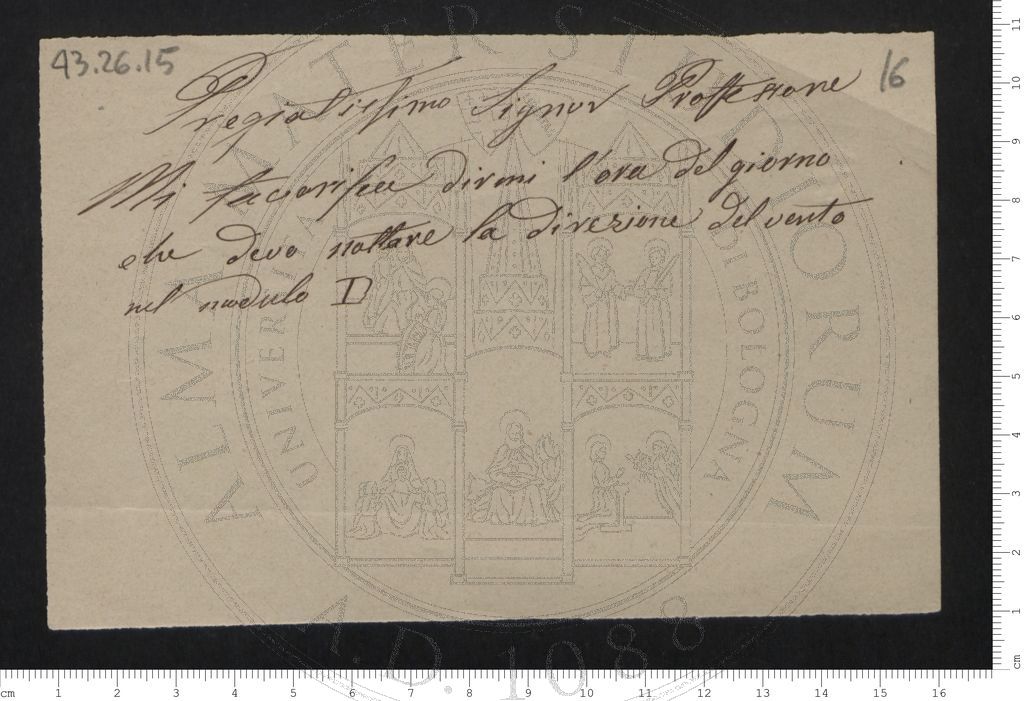 43.26.15
16
Pregiatissimo Signor Proffessore
Mi faccorisca dirmi l'ora del giorno
che devo nottare la direzione del vento
nel modulo D
ALMA MATER STUDIORUM
UNIVERSITÀ DI BOLOGNA
A.D. 1088
cm 1 2 3 4 5 6 7 8 9 10 11 12 13 14 15 16
cm 1 2 3 4 5 6 7 8 9 10 11